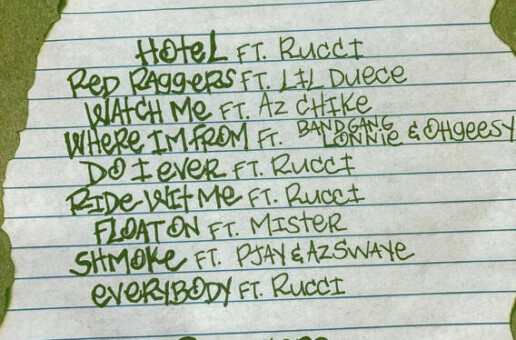 HOTEL FT. RUCCI
RED RAGGERS FT. LIL DUECE
WATCH ME FT. AZ CHIKE
WHERE IM FROM FT. BANDGANG LONNIE & OHGEESY
DO I EVER FT. RUCCI
RIDE WIT ME FT. RUCCI
FLOAT ON FT. MISTER
SHMOKE FT. PJAY & AZSWAYE
EVERYBODY FT. RUCCI